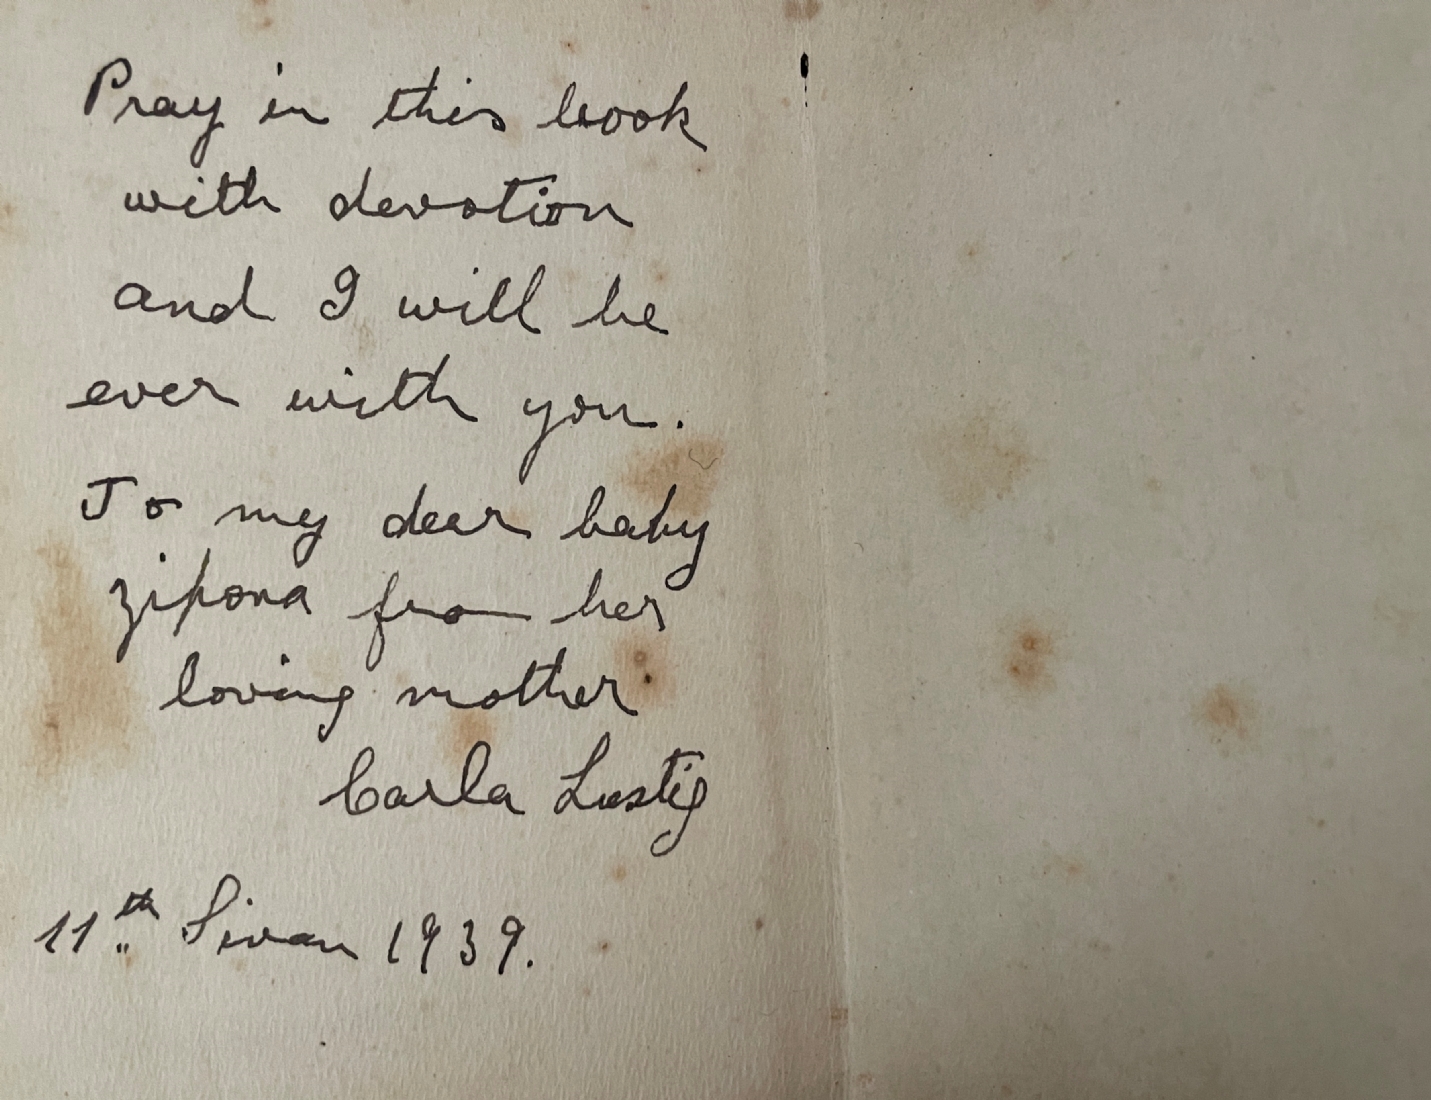 Pray in this book
with devotion
and I will be
ever with you.
To my dear baby
zipora from her
loving mother
Carla Lustig
11th Sivan 1939.